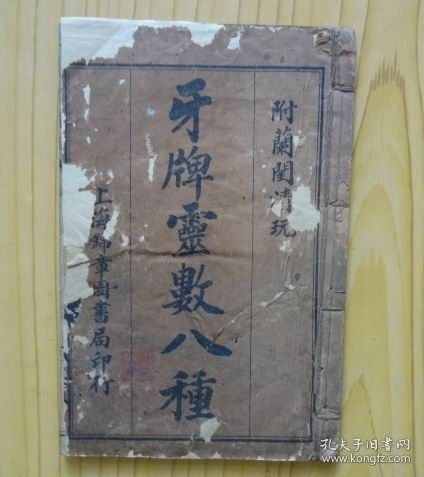 附蘭閨清玩
牙牌靈數八種
上海錦章圖書局印行
孔夫子旧书网
www.kongfz.com